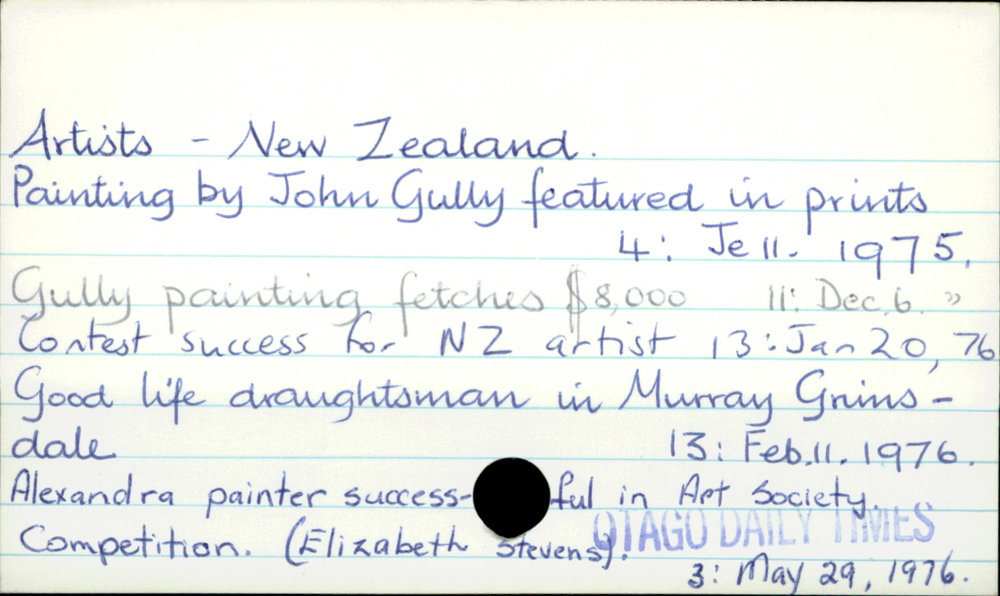 Artists - New Zealand.
Painting by John Gully featured in prints
4: Je 11. 1975.
Gully painting fetches $8,000 11: Dec. 6. "
Contest success for NZ artist 13: Jan 20, 76
Good life draughtsman in Murray Grims-
dale 13: Feb. 11. 1976.
Alexandra painter success-ful in Art Society.
Competition. (Elizabeth Stevens).
OTAGO DAILY TIMES
3: May 29, 1976.